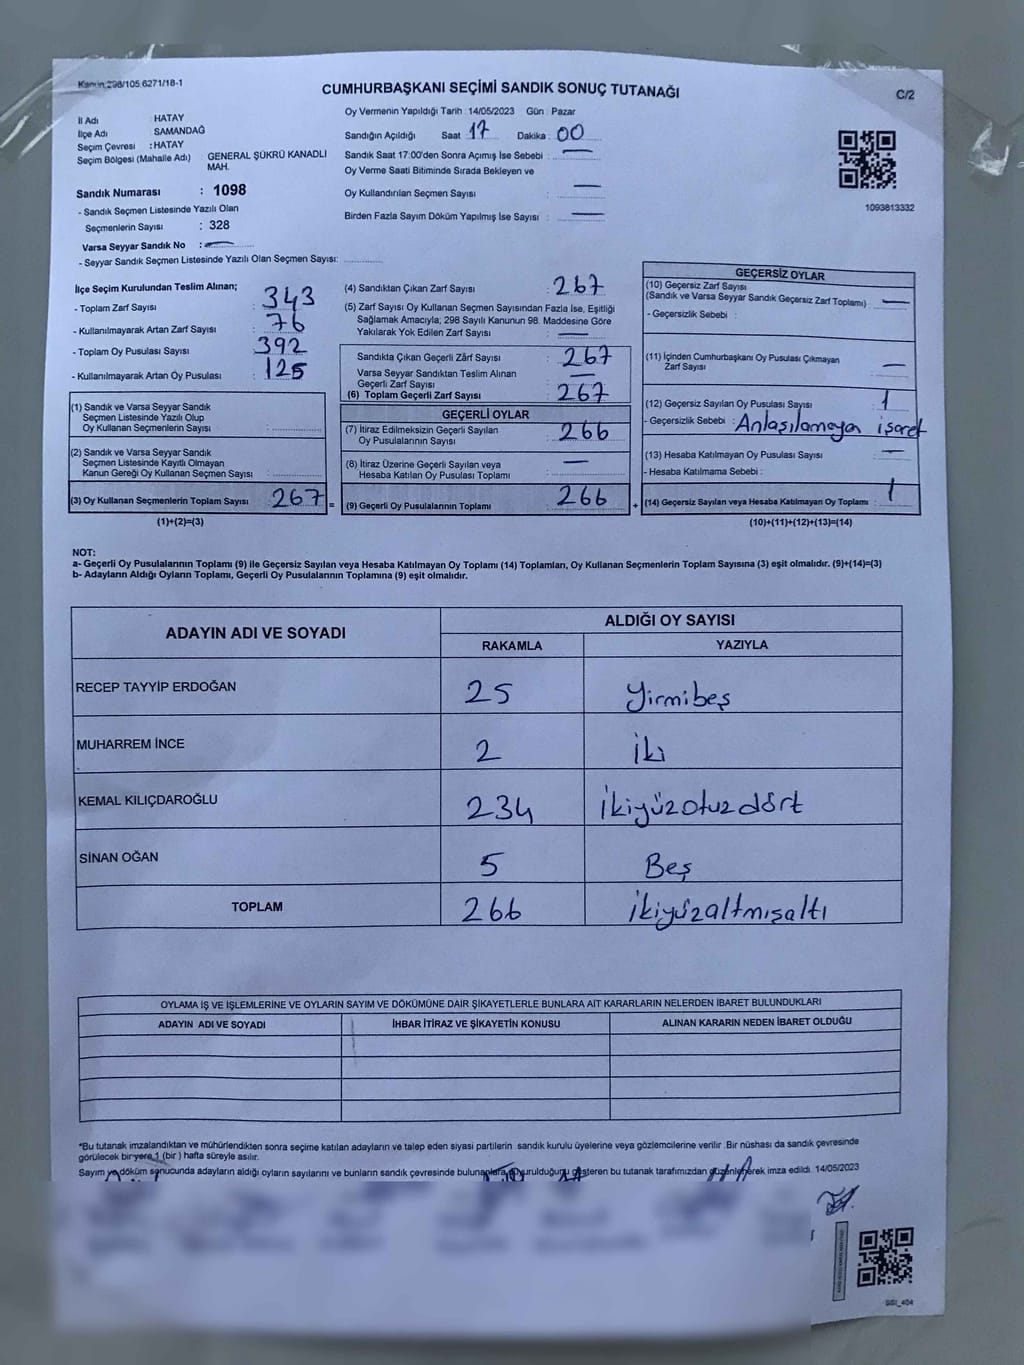 Kanun 298/105 6271/18-1
CUMHURBAŞKANI SEÇİMİ SANDIK SONUÇ TUTANAĞI
C/2
İl Adı : HATAY
İlçe Adı : SAMANDAĞ
Seçim Çevresi : HATAY
Seçim Bölgesi (Mahalle Adı) : GENERAL ŞÜKRÜ KANADLI
MAH.
Sandık Numarası : 1098
- Sandık Seçmen Listesinde Yazılı Olan
Seçmenlerin Sayısı : 328
Varsa Seyyar Sandık No : —
- Seyyar Sandık Seçmen Listesinde Yazılı Olan Seçmen Sayısı: ............
Oy Vermenin Yapıldığı Tarih : 14/05/2023 Gün : Pazar
Sandığın Açıldığı Saat : 17 Dakika : 00
Sandık Saat 17:00'den Sonra Açımış İse Sebebi : —
Oy Verme Saati Bitiminde Sırada Bekleyen ve
Oy Kullandırılan Seçmen Sayısı : —
Birden Fazla Sayım Döküm Yapılmış İse Sayısı : —
1093813332
İlçe Seçim Kurulundan Teslim Alınan;
- Toplam Zarf Sayısı : 343
- Kullanılmayarak Artan Zarf Sayısı : 76
- Toplam Oy Pusulası Sayısı : 392
- Kullanılmayarak Artan Oy Pusulası : 125
(1) Sandık ve Varsa Seyyar Sandık
Seçmen Listesinde Yazılı Olup
Oy Kullanan Seçmenlerin Sayısı : ............
(2) Sandık ve Varsa Seyyar Sandık
Seçmen Listesinde Kayıtlı Olmayan
Kanun Gereği Oy Kullanan Seçmen Sayısı : ............
(3) Oy Kullanan Seçmenlerin Toplam Sayısı : 267
(1)+(2)=(3)
=
(4) Sandıktan Çıkan Zarf Sayısı : 267
(5) Zarf Sayısı Oy Kullanan Seçmen Sayısından Fazla İse, Eşitliği
Sağlamak Amacıyla, 298 Sayılı Kanunun 98. Maddesine Göre
Yakılarak Yok Edilen Zarf Sayısı : —
Sandıkta Çıkan Geçerli Zarf Sayısı : 267
Varsa Seyyar Sandıktan Teslim Alınan
Geçerli Zarf Sayısı : —
(6) Toplam Geçerli Zarf Sayısı : 267
GEÇERLİ OYLAR
(7) İtiraz Edilmeksizin Geçerli Sayılan
Oy Pusulalarının Sayısı : 266
(8) İtiraz Üzerine Geçerli Sayılan veya
Hesaba Katılan Oy Pusulası Toplamı : —
(9) Geçerli Oy Pusulalarının Toplamı : 266
+
GEÇERSİZ OYLAR
(10) Geçersiz Zarf Sayısı
(Sandık ve Varsa Seyyar Sandık Geçersiz Zarf Toplamı) : —
- Geçersizlik Sebebi :
(11) İçinden Cumhurbaşkanı Oy Pusulası Çıkmayan
Zarf Sayısı : —
(12) Geçersiz Sayılan Oy Pusulası Sayısı : 1
- Geçersizlik Sebebi : Anlaşılamayan işaret
(13) Hesaba Katılmayan Oy Pusulası Sayısı : —
- Hesaba Katılmama Sebebi :
(14) Geçersiz Sayılan veya Hesaba Katılmayan Oy Toplamı : 1
(10)+(11)+(12)+(13)=(14)
NOT:
a- Geçerli Oy Pusulalarının Toplamı (9) ile Geçersiz Sayılan veya Hesaba Katılmayan Oy Toplamı (14) Toplamları, Oy Kullanan Seçmenlerin Toplam Sayısına (3) eşit olmalıdır. (9)+(14)=(3)
b- Adayların Aldığı Oyların Toplamı, Geçerli Oy Pusulalarının Toplamına (9) eşit olmalıdır.
ADAYIN ADI VE SOYADI
ALDIĞI OY SAYISI
RAKAMLA YAZIYLA
RECEP TAYYİP ERDOĞAN 25 Yirmibeş
MUHARREM İNCE 2 İki
KEMAL KILIÇDAROĞLU 234 İkiyüzotuzdört
SİNAN OĞAN 5 Beş
TOPLAM 266 İkiyüzaltmışaltı
OYLAMA İŞ VE İŞLEMLERİNE VE OYLARIN SAYIM VE DÖKÜMÜNE DAİR ŞİKAYETLERLE BUNLARA AİT KARARLARIN NELERDEN İBARET BULUNDUKLARI
ADAYIN ADI VE SOYADI İHBAR İTİRAZ VE ŞİKAYETİN KONUSU ALINAN KARARIN NEDEN İBARET OLDUĞU
*Bu tutanak imzalandıktan ve mühürlendikten sonra seçime katılan adayların ve talep eden siyasi partilerin sandık kurulu üyelerine veya gözlemcilerine verilir .Bir nüshası da sandık çevresinde
görülecek bir yere 1 (bir ) hafta süreyle asılır.
Sayım ve döküm sonucunda adayların aldığı oyların sayılarını ve bunların sandık çevresinde bulunanlara duyurulduğunu gösteren bu tutanak tarafımızdan düzenlenerek imza edildi. 14/05/2023